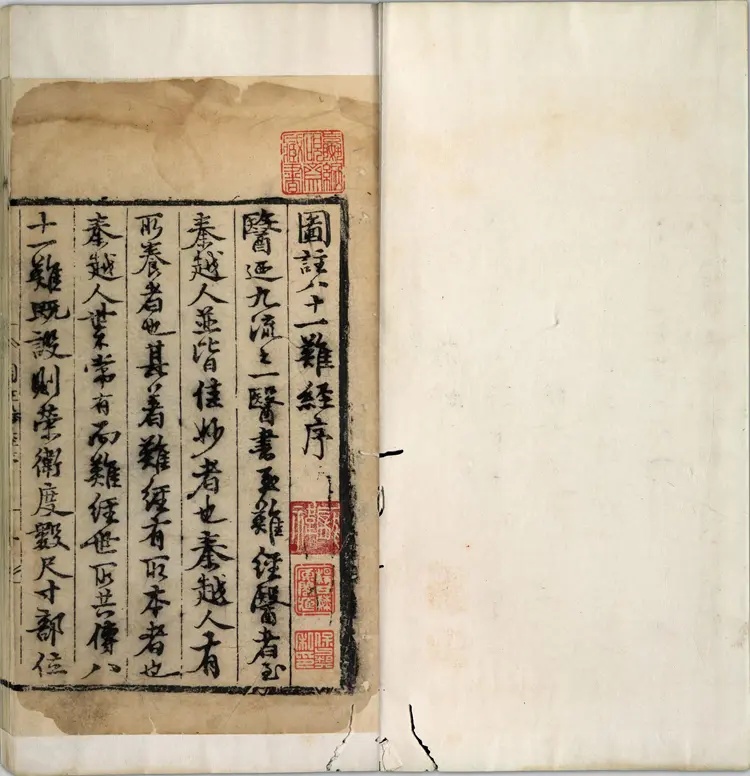 圖註八十一難經序
醫迺九流之一醫書更難經醫者至
秦越人並皆佳妙者也秦越人有
所養者也其著難經有所本者也
秦越人業常有而難經世所共傳八
十一難既設則榮衛度數尺寸部位